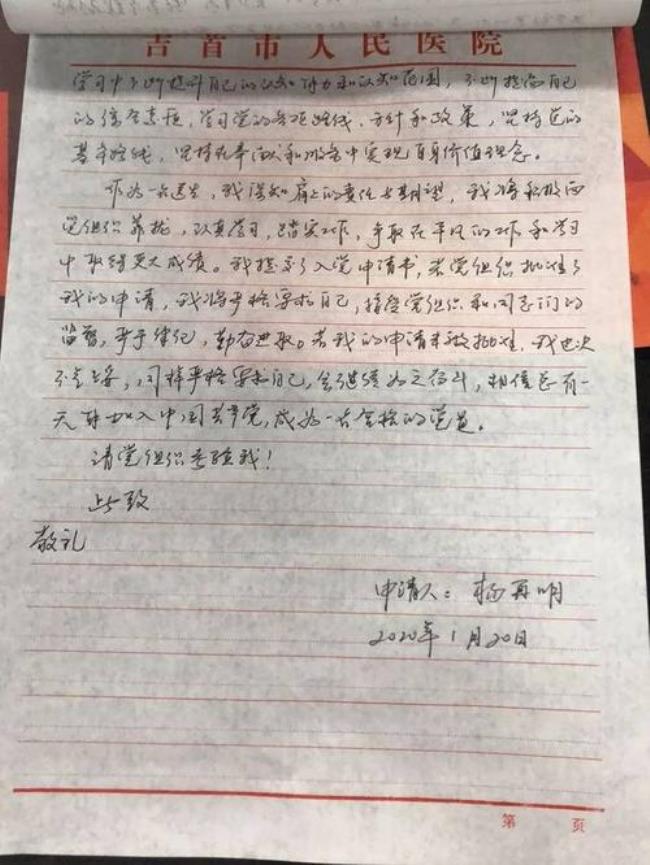 吉首市人民医院
学习中不断提升自己的认知能力和认知范围，不断提高自己
的综合素质，学习党的各项路线、方针和政策，坚持党的
基本路线，坚持在奉献和服务中实现自身价值理念。
作为一名医生，我深知肩上的责任与期望，我将积极向
党组织靠拢，认真学习，踏实工作，争取在平凡的工作和学习
中取得更大成绩。我提交了入党申请书，若党组织批准了
我的申请，我将严格要求自己，接受党组织和同志们的
监督，严于律己，勤奋进取。若我的申请未被批准，我也决
不气妥，同样严格要求自己，会继续为之奋斗，相信总有一
天能加入中国共产党，成为一名合格的党员。
请党组织考验我！
此致
敬礼
申请人：杨再明
2020年1月20日
第 页